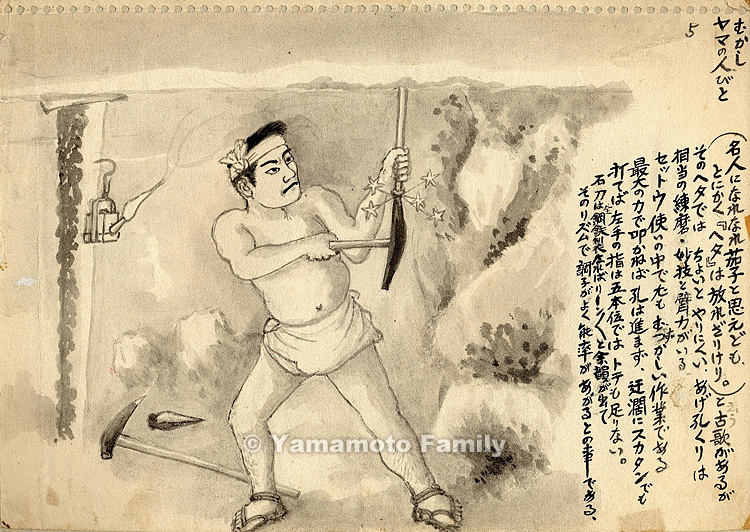 むかし
ヤマの人びと
5
(名人になれなれ茄子と思えども、
とにかく『ヘタ』は放れざりけり。)と云う古歌があるが
そのヘタでは ちょいとやりにくい、あげ孔くりは
相当の練磨・妙技と臂力がいる
セットウ使いの中で尤もむつかしい作業である
最大の力で叩かねば孔は進まず、迂濶にスカタンでも
打てば左手の指は五本位ではトテも足りない。
石刀は鋼鉄製なればリーン〱と余韻が出て
そのリズムで調子がよく能率があがるとの事である、
© Yamamoto Family